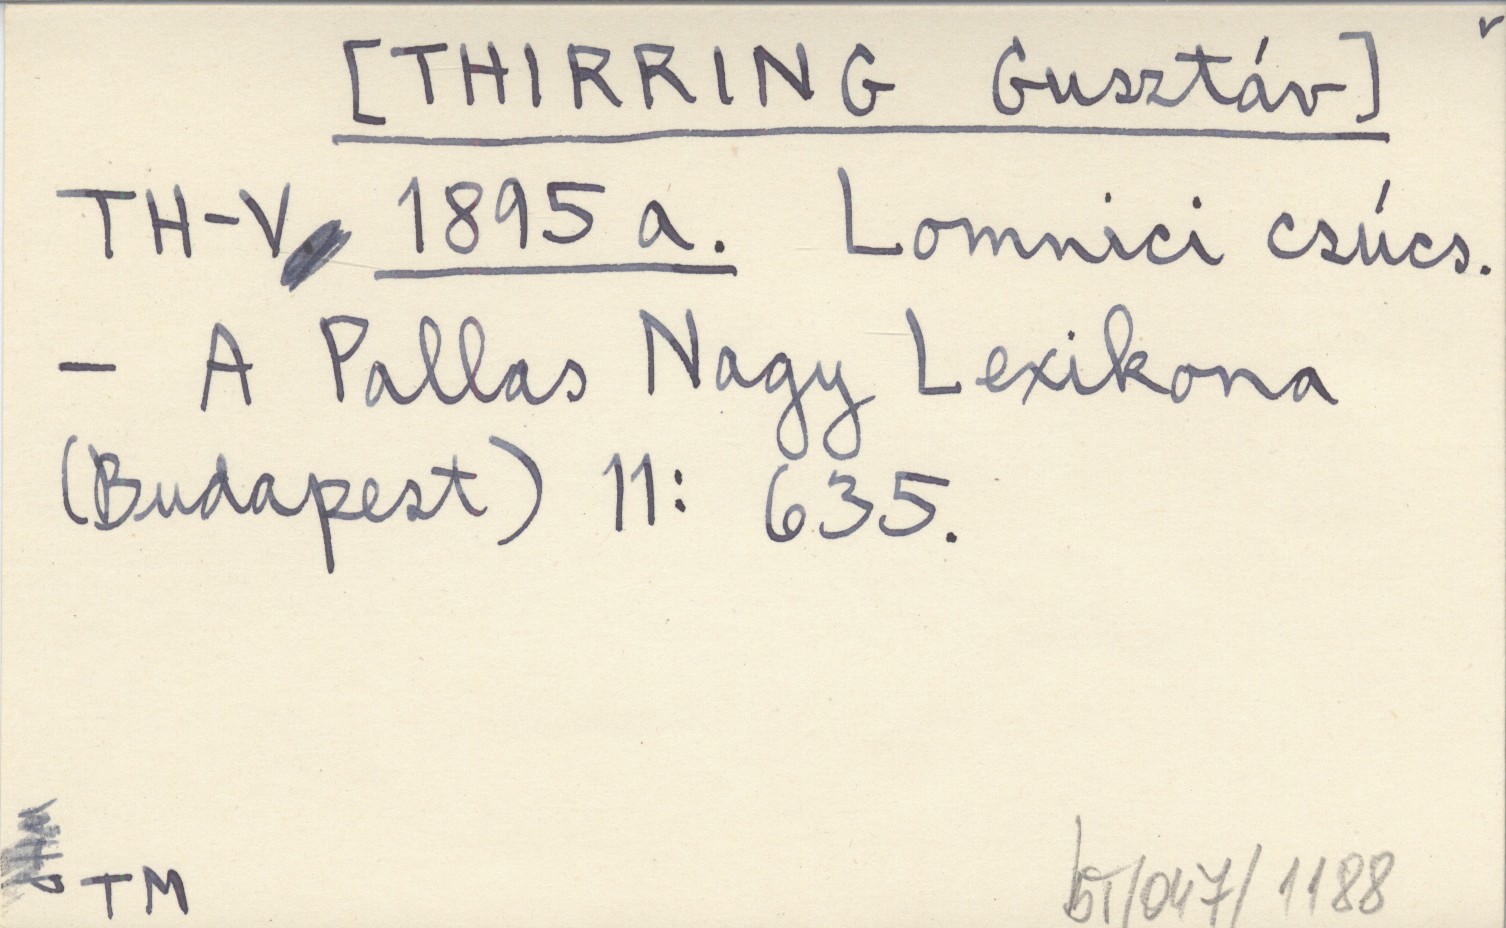 [THIRRING Gusztáv]
TH-V 1895 a. Lomnici csúcs.
- A Pallas Nagy Lexikona
(Budapest) 11: 635.
TM
/047/1188